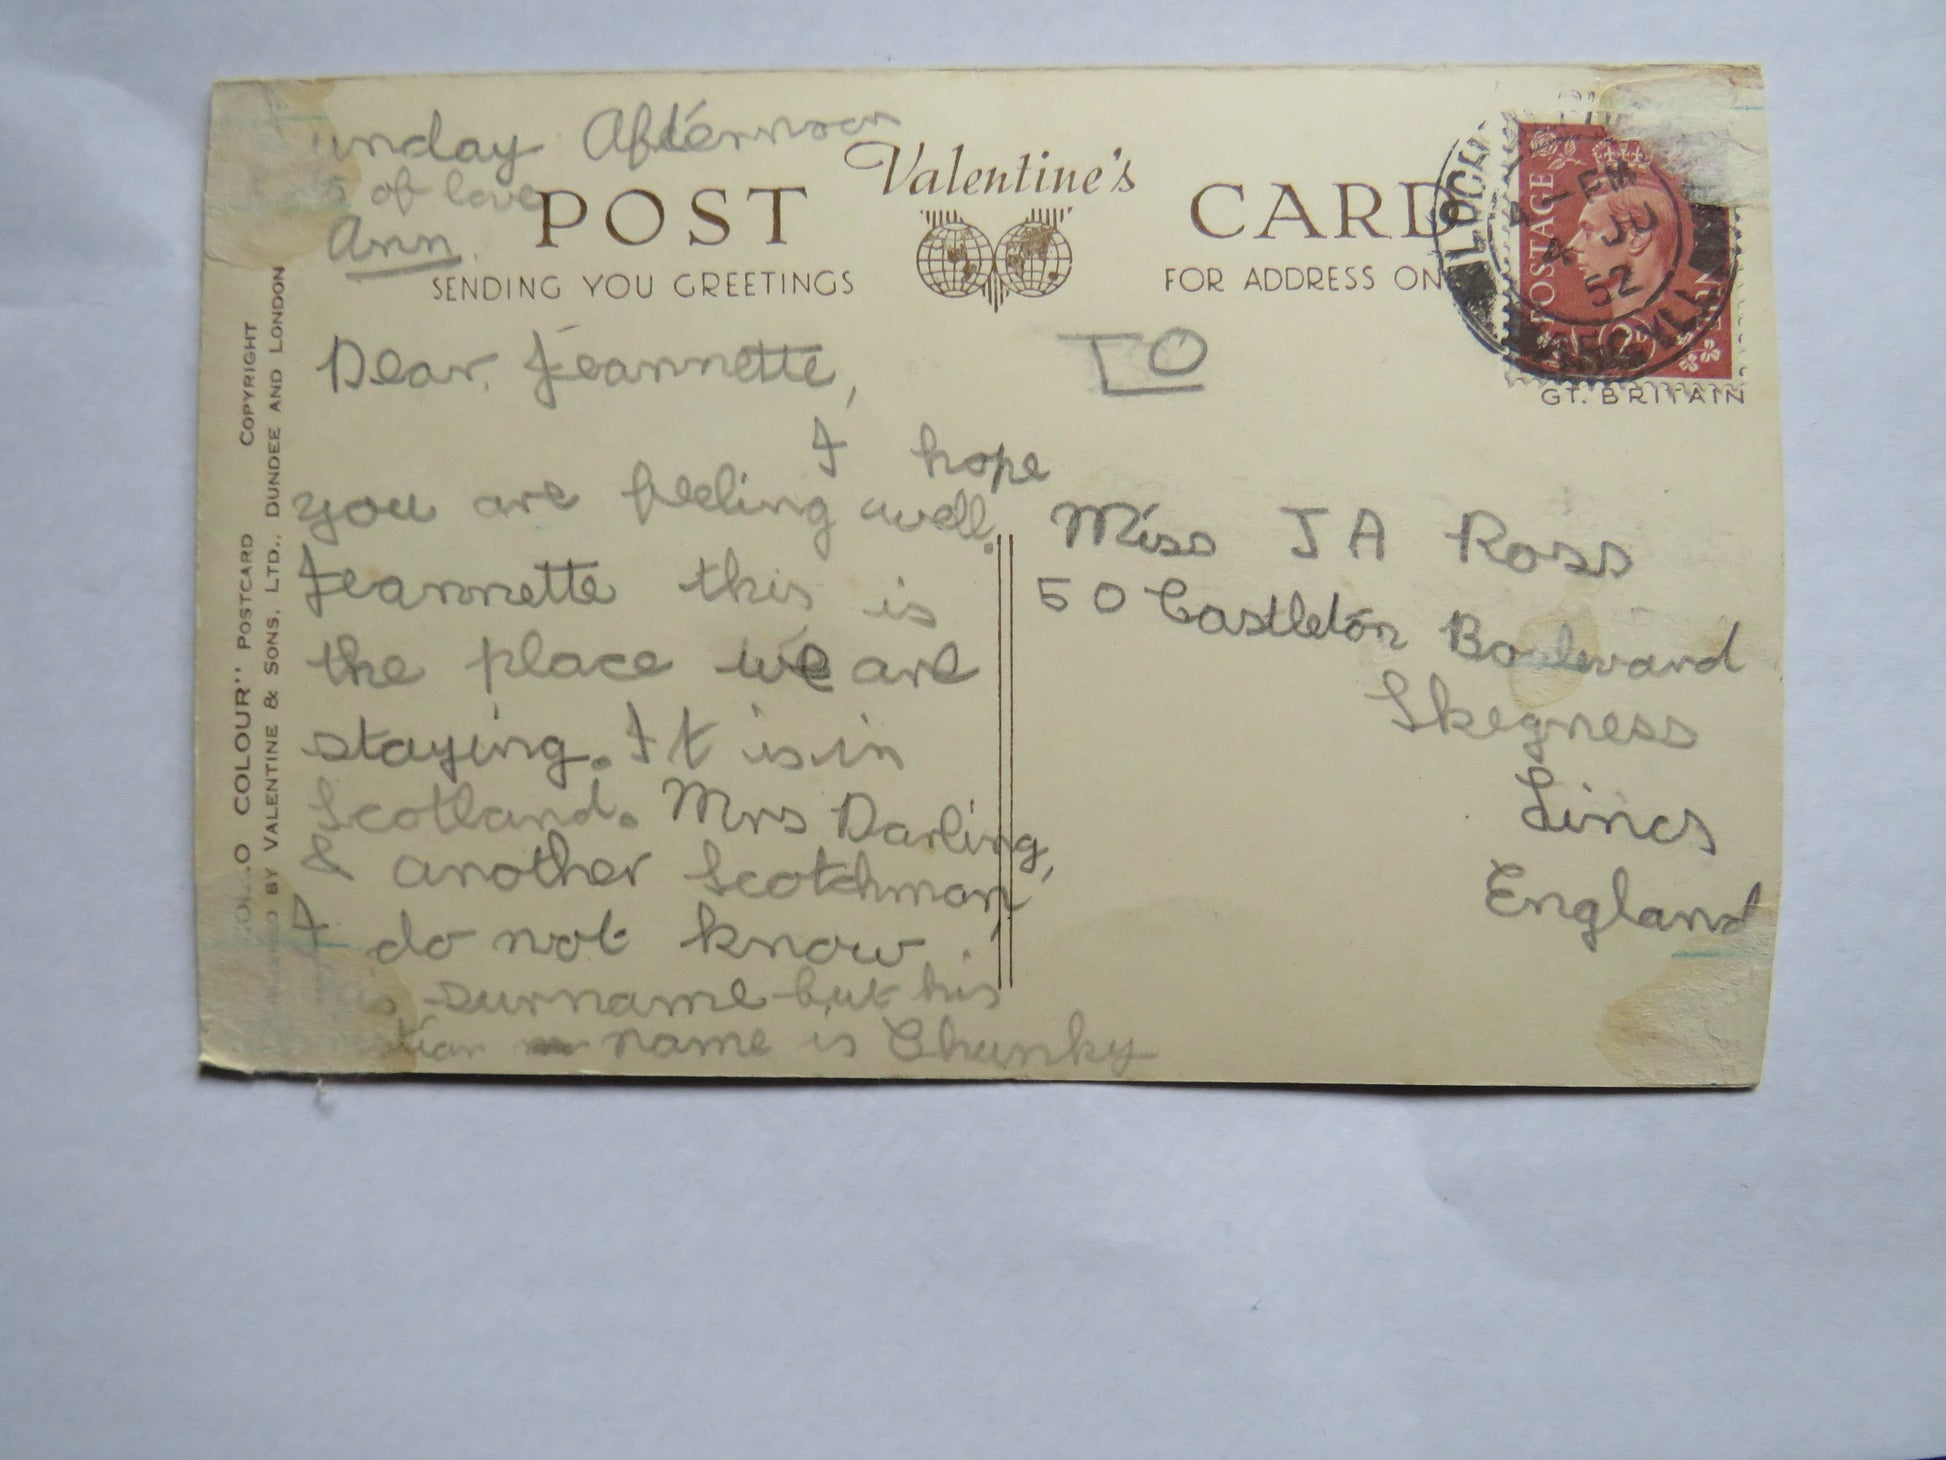 unday Afternoon
of love
Ann.
Valentine's
POST CARD
SENDING YOU GREETINGS
FOR ADDRESS ON
LOCH
4 JU
52
ARGYLL
POSTAGE
GT. BRITAIN
COLOUR" POSTCARD COPYRIGHT
BY VALENTINE & SONS, LTD., DUNDEE AND LONDON
Dear, Jeannette,
I hope
you are feeling well.
Jeannette this is
the place we are
staying. It is in
Scotland. Mrs Darling,
& another Scotchman,
I do not know
surname but his
tian name is Chunky
TO
Miss J A Ross
50 Castleton Boulevard
Skegness
Lincs
England